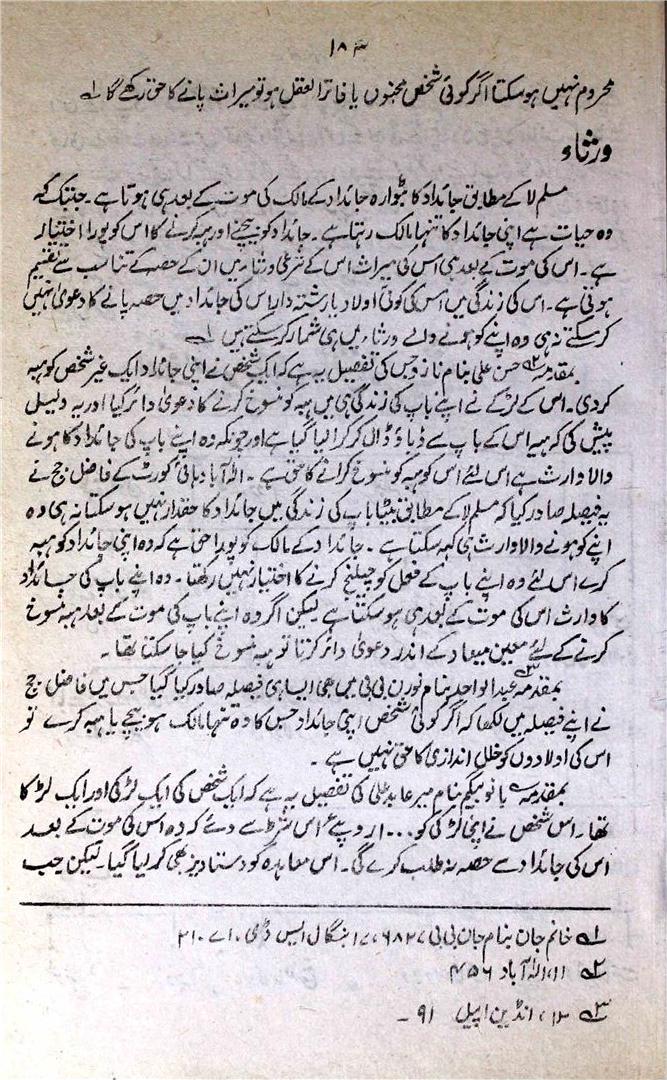 ۱۸۳
محروم نہیں ہوسکتا اگر کوئی شخص مجنوں یا فاترالعقل ہو تو میراث پانے کا حق رکھے گا ۱؎
ورثاء
مسلم لا کے مطابق جائداد کا بٹوارہ جائداد کے مالک کی موت کے بعد ہی ہوتا ہے۔ جبتک کہ
وہ حیات ہے اپنی جائداد کا تنہا مالک رہتا ہے۔ جائداد کو بیچنے اور ہبہ کرنے کا اس کو پورا اختیار
ہے۔ اس کی موت کے بعد ہی اس کی میراث اس کے شرعی ورثاء میں ان کے حصہ کے تناسب سے تقسیم
ہوتی ہے۔ اس کی زندگی میں اس کی کوئی اولاد یا رشتہ دار اس کی جائداد میں حصہ پانے کا دعویٰ نہیں
کرسکتے نہ ہی وہ اپنے کو ہونے والے ورثاء میں ہی شمار کرسکتے ہیں ۱؎
بمقدمہ ۲؎ حسن علی بنام نازو جس کی تفصیل یہ ہے کہ ایک شخص نے اپنی جائداد ایک غیر شخص کو ہبہ
کردی۔ اس کے لڑکے نے اپنے باپ کی زندگی ہی میں ہبہ کو منسوخ کرنے کا دعویٰ دائر کیا اور یہ دلیل
پیش کی کہ ہبہ اس کے باپ سے دباؤ ڈال کر کرا لیا گیا ہے اور چونکہ وہ اپنے باپ کی جائداد کا ہونے
والا وارث ہے اس لئے اس کو ہبہ کو منسوخ کرانے کا حق ہے۔ الہ آباد ہائی کورٹ کے فاضل جج نے
یہ فیصلہ صادر کیا کہ مسلم لا کے مطابق بیٹا باپ کی زندگی میں جائداد کا حقدار نہیں ہوسکتا نہ ہی وہ
اپنے کو ہونے والا وارث ہی کہہ سکتا ہے۔ جائداد کے مالک کو پورا حق ہے کہ وہ اپنی جائداد کو ہبہ
کرے اس لئے وہ اپنے باپ کے فعل کو چیلنج کرنے کا اختیار نہیں رکھتا۔ وہ اپنے باپ کی جائداد
کا وارث اس کی موت کے بعد ہی ہوسکتا ہے لیکن اگر وہ اپنے باپ کی موت کے بعد ہبہ منسوخ
کرنے کے لئے معین میعاد کے اندر دعویٰ دائر کرتا تو ہبہ منسوخ کیا جاسکتا تھا۔
بمقدمہ ۳؎ عبدالواحد بنام نورن بی بی میں بھی ایسا ہی فیصلہ صادر کیا گیا جس میں فاضل جج
نے اپنے فیصلہ میں لکھا کہ اگر کوئی شخص اپنی جائداد جس کا وہ تنہا مالک ہو بیچے یا ہبہ کرے تو
اس کی اولادوں کو خلل اندازی کا حق نہیں ہے۔
بمقدمہ بانو بیگم بنام میر عابد علی کی تفصیل یہ ہے کہ ایک شخص کی ایک لڑکی اور ایک لڑکا
تھا۔ اس شخص نے اپنی لڑکی کو ۱۰۰۰ روپے اس شرط سے دئے کہ وہ اس کی موت کے بعد
اس کی جائداد سے حصہ نہ طلب کرے گی۔ اس معاہدہ کو دستاویز بھی کرلیا گیا۔ لیکن جب
۱؎ خانم جان بنام جان بی بی ۱۸۲۷ء بنگال ایس ڈی۔ اے ۲۱۰
۲؎ ۱۱، الہ آباد ۴۵۶
۳؎ ۱۲، انڈین اپیل ۹۱۔